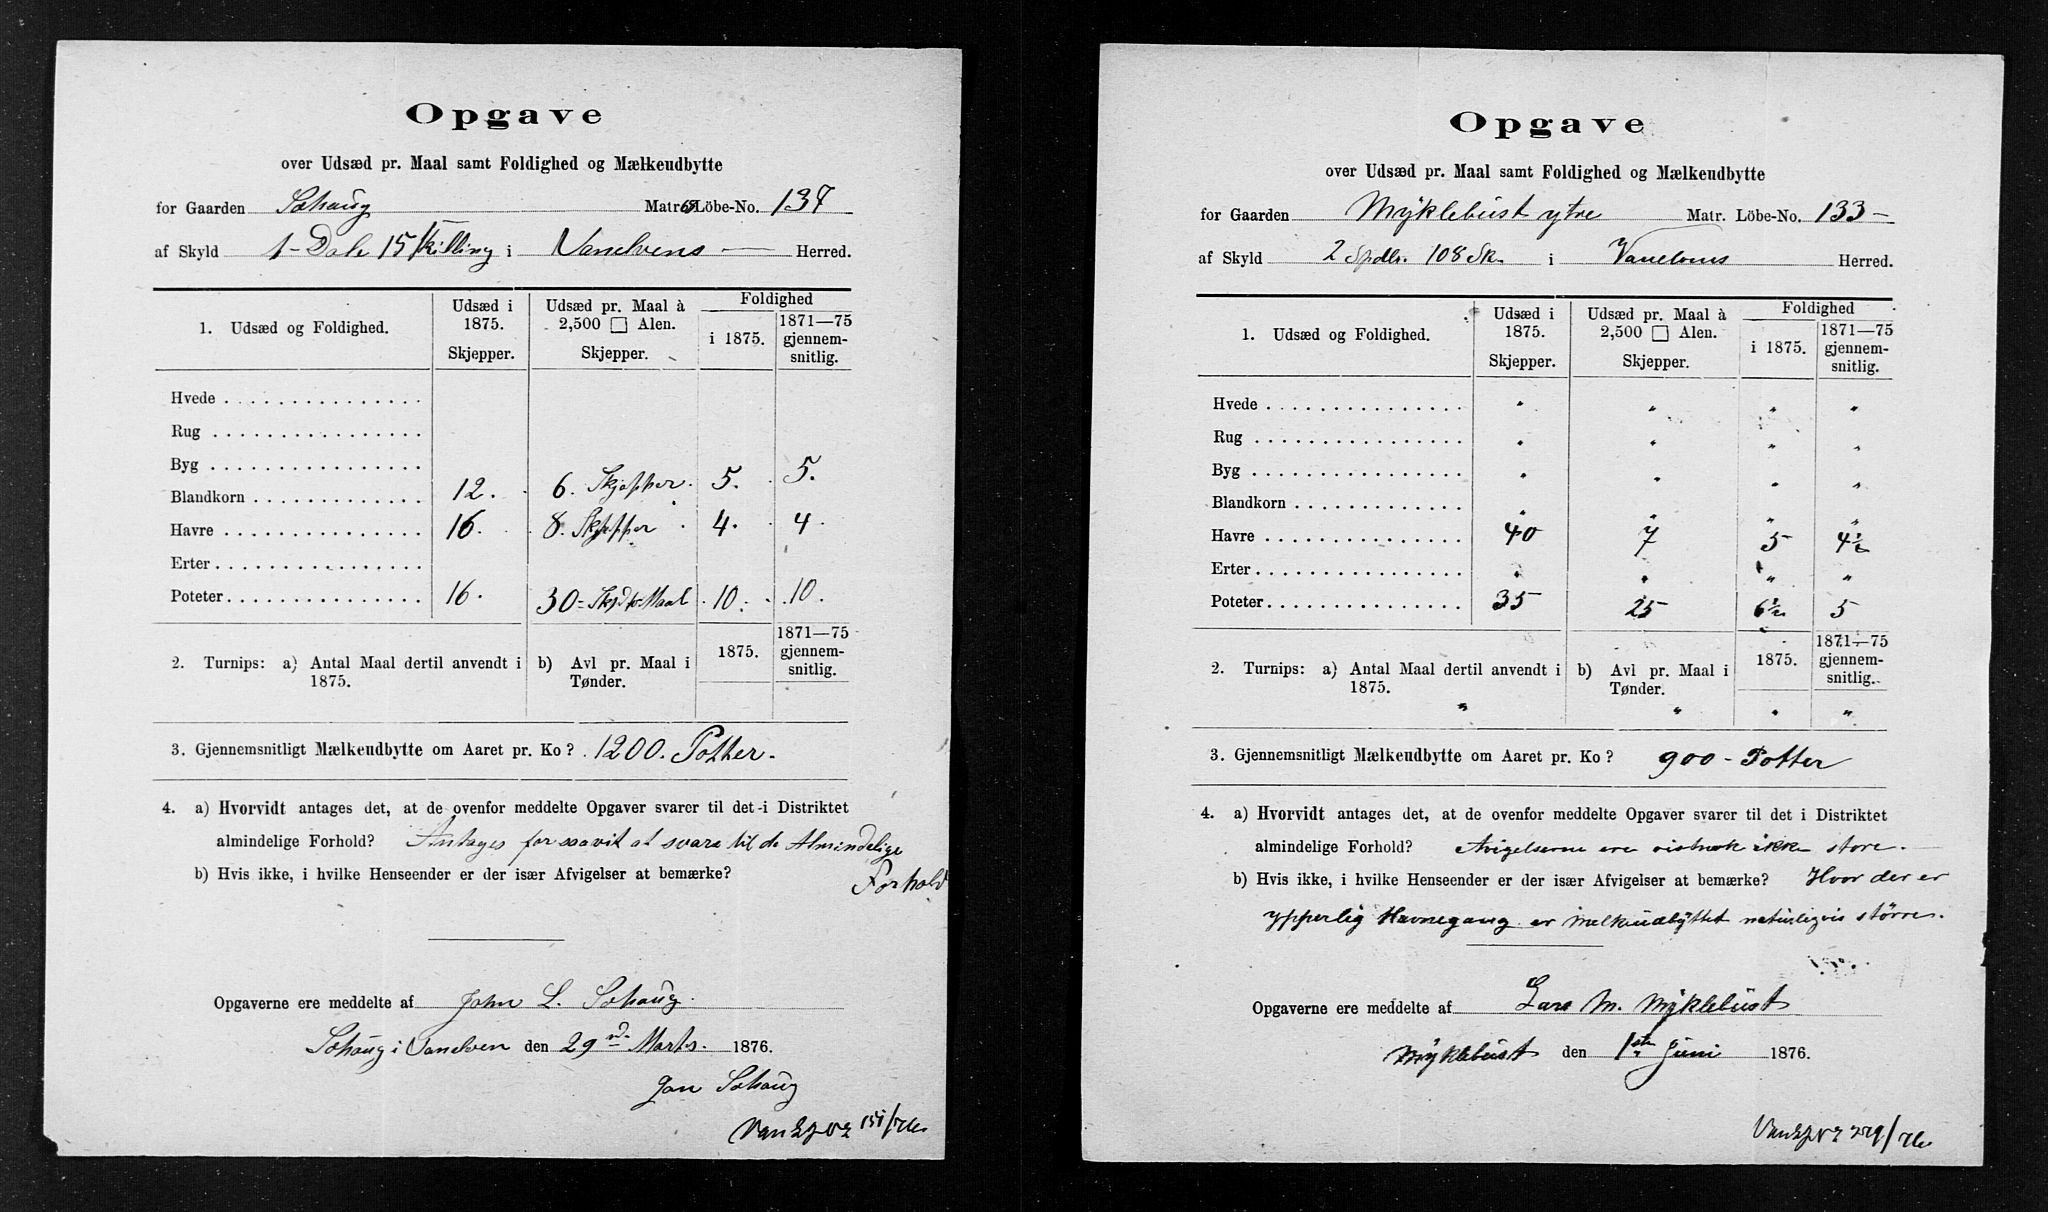 Opgave
over Udsæd pr. Maal samt Foldighed og Mælkeudbytte
for Gaarden Sohaug Matr. Löbe-No. 137
af Skyld 1 Dale 15 Skilling i Vanelvens Herred.
1. Udsæd og Foldighed. Udsæd i 1875. Skjepper. Udsæd pr. Maal à 2,500 □ Alen. Skjepper. Foldighed i 1875. 1871—75 gjennemsnitlig.
Hvede
Rug
Byg
Blandkorn 12. 6. Skjepper. 5. 5.
Havre 16. 8. Skjepper 4. 4.
Erter
Poteter 16. 30 Maal 10. 10.
2. Turnips: a) Antal Maal dertil anvendt i 1875. b) Avl pr. Maal i Tønder. 1875. 1871—75 gjennemsnitlig.
3. Gjennemsnitligt Mælkeudbytte om Aaret pr. Ko? 1200. Potter.
4. a) Hvorvidt antages det, at de ovenfor meddelte Opgaver svarer til det i Distriktet
almindelige Forhold? Antages for saavit at svare til de Almindelige
b) Hvis ikke, i hvilke Henseender er der især Afvigelser at bemærke? Forhold
Opgaverne ere meddelte af John L. Sohaug.
Sohaug i Vanelven den 29nd Marts. 1876.
Jon Sohaug
Opgave
over Udsæd pr. Maal samt Foldighed og Mælkeudbytte
for Gaarden Mÿklebust ytre Matr. Löbe-No. 133-
af Skyld 2 Spdlr. 108 Sk. i Vanelvens Herred.
1. Udsæd og Foldighed. Udsæd i 1875. Skjepper. Udsæd pr. Maal à 2,500 □ Alen. Skjepper. Foldighed i 1875. 1871—75 gjennemsnitlig.
Hvede " " " "
Rug " " " "
Byg " " " "
Blandkorn " " " "
Havre 40 7 5 4½
Erter " " " "
Poteter 35 25 6½ 5
2. Turnips: a) Antal Maal dertil anvendt i 1875. b) Avl pr. Maal i Tønder. 1875. 1871—75 gjennemsnitlig.
" " " "
3. Gjennemsnitligt Mælkeudbytte om Aaret pr. Ko? 900 - Potter
4. a) Hvorvidt antages det, at de ovenfor meddelte Opgaver svarer til det i Distriktet
almindelige Forhold? Avigelserne ere vistnok ikke store.
b) Hvis ikke, i hvilke Henseender er der især Afvigelser at bemærke? Hvor der er
ypperlig Havnegang er Melkeudbÿttet naturligvis større.
Opgaverne ere meddelte af Lars M. Mÿklebust
Mÿklebust den 1ste Juni 1876.